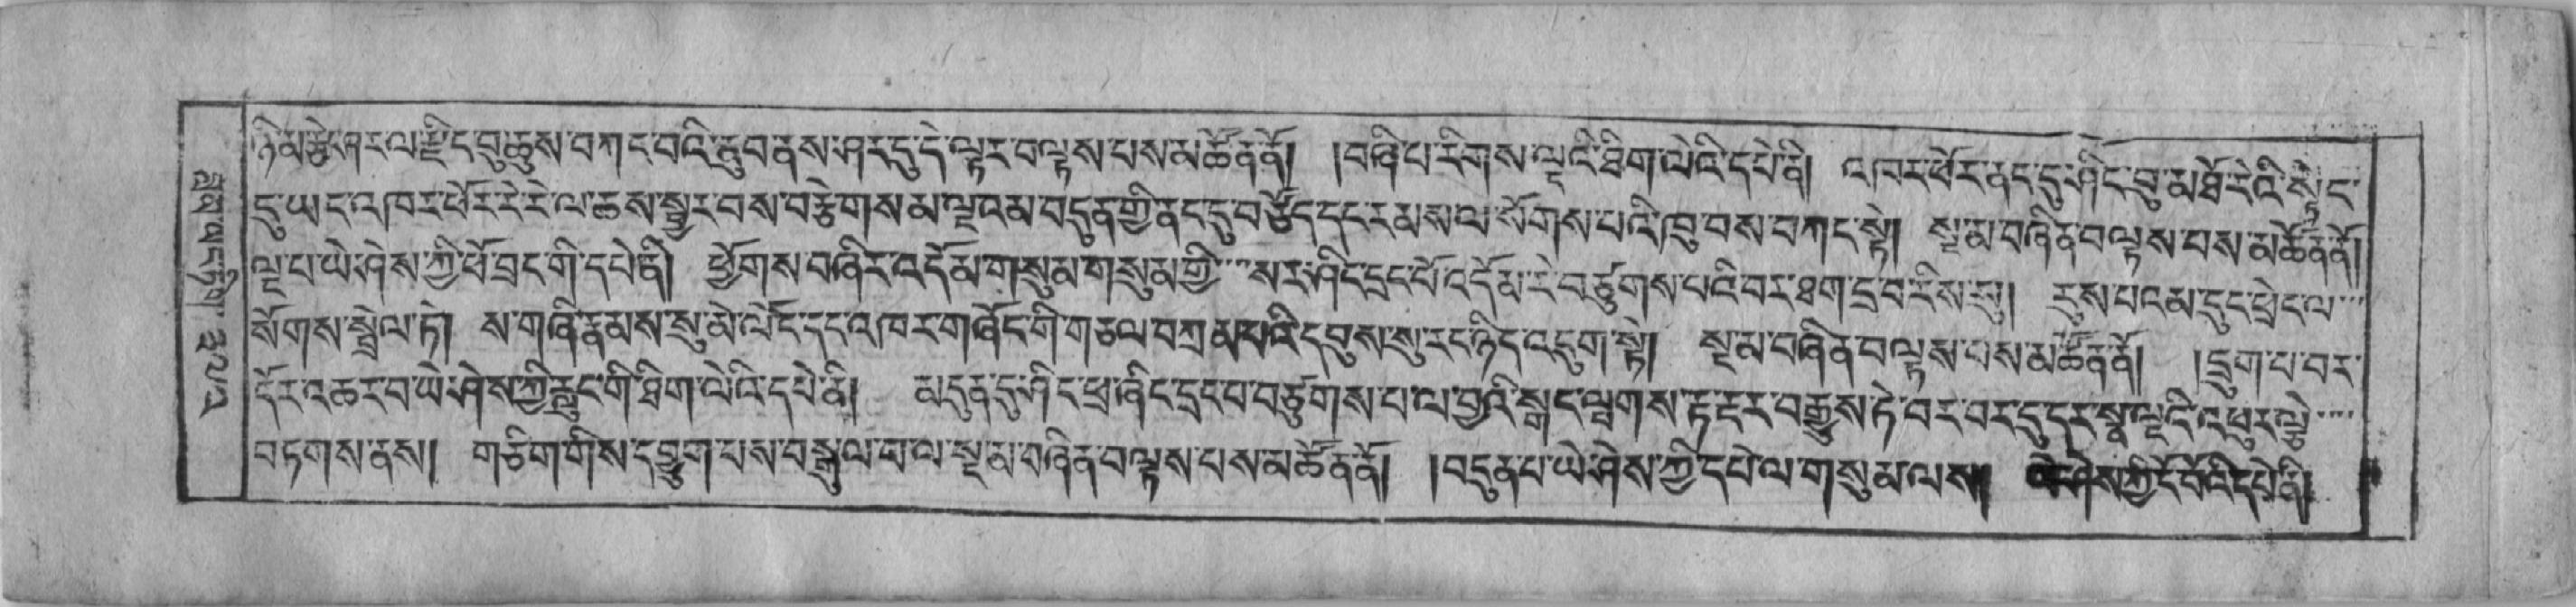 ཉེ་མ་རྩེ་ཤར་ལ་རྫིང་བུ་ཆུས་བཀང་བའི་ནུབ་ནས་ཤར་དུ་དེ་ལྟར་བལྟས་པས་མཚོན་ནོ། །བཞི་པ་རིགས་ལྔའི་ཐིག་ལེའི་དཔེ་ནི། འཁར་ཕོར་ནང་དུ་ཤིང་བུ་མཐོ་རེའི་སྟེང་
དུ་ཡང་འཁར་ཕོར་རེ་རེ་ལ་ཆས་སྦྱར་བས་བརྩེགས་མ་ལྔའམ་བདུན་གྱི་ནང་དུ་བཙོད་དང་རམས་ལ་སོགས་པའི་ཁུ་བས་བཀང་སྟེ། སྔ་མ་བཞིན་བལྟས་པས་མཚོན་ནོ།
ལྔ་པ་ཡེ་ཤེས་ཀྱི་ཕོ་བྲང་གི་དཔེ་ནི། ཕྱོགས་བཞིར་འདོམ་གསུམ་གསུམ་གྱི་སར་ཤིང་དྲང་པོ་འདོམ་རེ་བཙུགས་པའི་བར་ཐག་དྲ་བ་རིས་སུ། རུས་པའམ་དུང་ཕྲེང་ལ་
སོགས་སྤྲེལ་ཏེ། ས་གཞི་རྣམས་སུ་མེ་ལོང་དང་འཁར་གཞོང་གི་གཅལ་བཀྲམ་པའི་དབུས་སུ་རང་ཉིད་འདུག་སྟེ། སྔ་མ་བཞིན་བལྟས་པས་མཚོན་ནོ། །དྲུག་པ་བར་
དོར་འཆར་བ་ཡེ་ཤེས་ཀྱི་རླུང་གི་ཐིག་ལེའི་དཔེ་ནི། མདུན་དུ་ཤིང་ཕྲ་ཞིང་དྲང་བ་བཙུགས་པ་ལ་བྱའི་སྒང་ལྤགས་རྟ་རྔར་བརྒྱུས་ཏེ་བར་བར་དུ་དར་སྣ་ལྔའི་འཕུར་ལྕེ་
བཏགས་ནས། གཅིག་གིས་དབྱུག་པས་བསྒུལ་བ་ལ་སྔ་མ་བཞིན་བལྟས་པས་མཚོན་ནོ། །བདུན་པ་ཡེ་ཤེས་ཀྱི་དཔེ་ལ་གསུམ་ལས། ཡེ་ཤེས་ཀྱི་ངོ་བོའི་དཔེ་ནི།